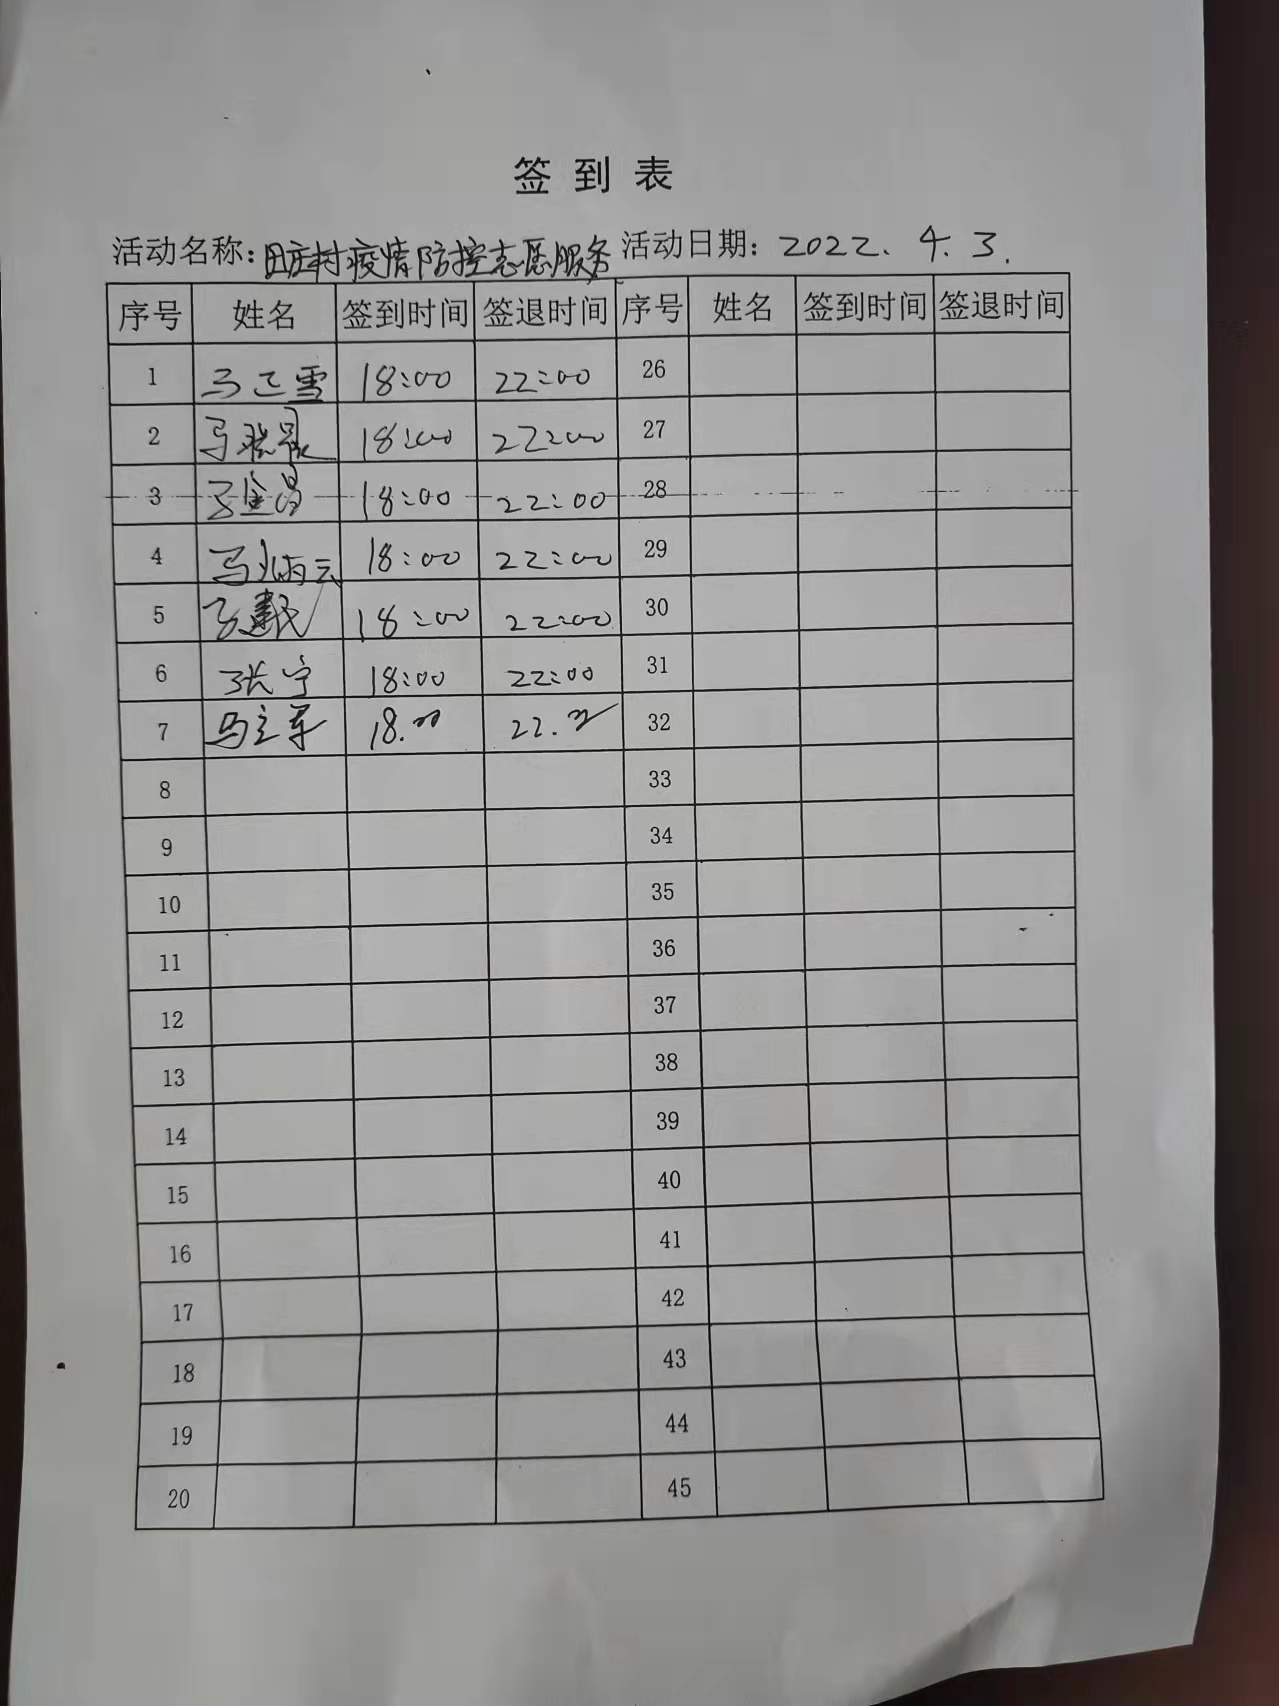 签到表
活动名称：田庄村疫情防控志愿服务 活动日期：2022.4.3.
序号 姓名 签到时间 签退时间 序号 姓名 签到时间 签退时间
1 马正雪 18:00 22:00 26
2 马 18:00 22:00 27
3 马金昌 18:00 22:00 28
4 马炳云 18:00 22:00 29
5 马建民 18:00 22:00 30
6 张宁 18:00 22:00 31
7 马立军 18.00 22.00 32
8 33
9 34
10 35
11 36
12 37
13 38
14 39
15 40
16 41
17 42
18 43
19 44
20 45